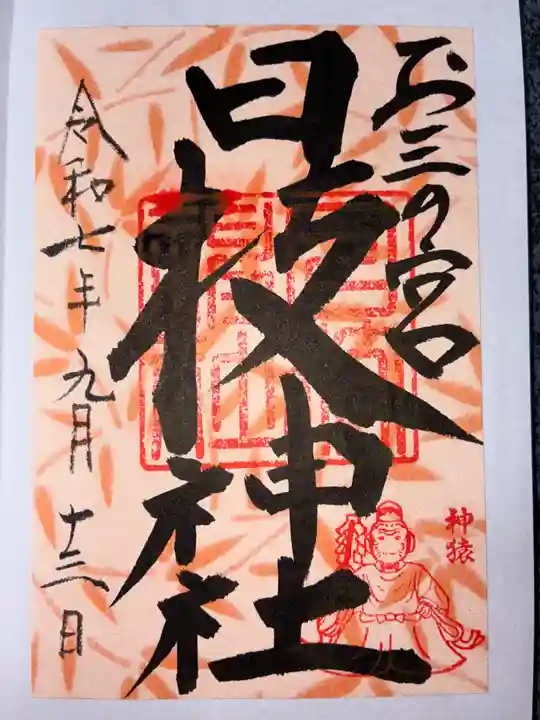 お三の宮
日枝神社
令和七年九月十三日
神猿